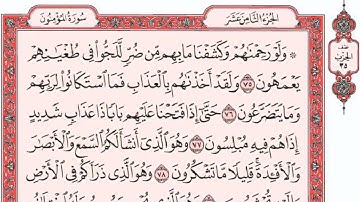 سُورَةُ المُؤْمِنُون
الجُزْءُ الثَّامِنَ عَشَرَ
نصف الحزب ٣٥
۞ وَلَوْ رَحِمْنَٰهُمْ وَكَشَفْنَا مَا بِهِم مِّن ضُرٍّ لَّلَجُّوا۟ فِى طُغْيَٰنِهِمْ
يَعْمَهُونَ ٧٥ وَلَقَدْ أَخَذْنَٰهُم بِٱلْعَذَابِ فَمَا ٱسْتَكَانُوا۟ لِرَبِّهِمْ
وَمَا يَتَضَرَّعُونَ ٧٦ حَتَّىٰٓ إِذَا فَتَحْنَا عَلَيْهِم بَابًا ذَا عَذَابٍ شَدِيدٍ
إِذَا هُمْ فِيهِ مُبْلِسُونَ ٧٧ وَهُوَ ٱلَّذِىٓ أَنشَأَ لَكُمُ ٱلسَّمْعَ وَٱلْأَبْصَٰرَ
وَٱلْأَفْـِٔدَةَ ۚ قَلِيلًا مَّا تَشْكُرُونَ ٧٨ وَهُوَ ٱلَّذِى ذَرَأَكُمْ فِى ٱلْأَرْضِ